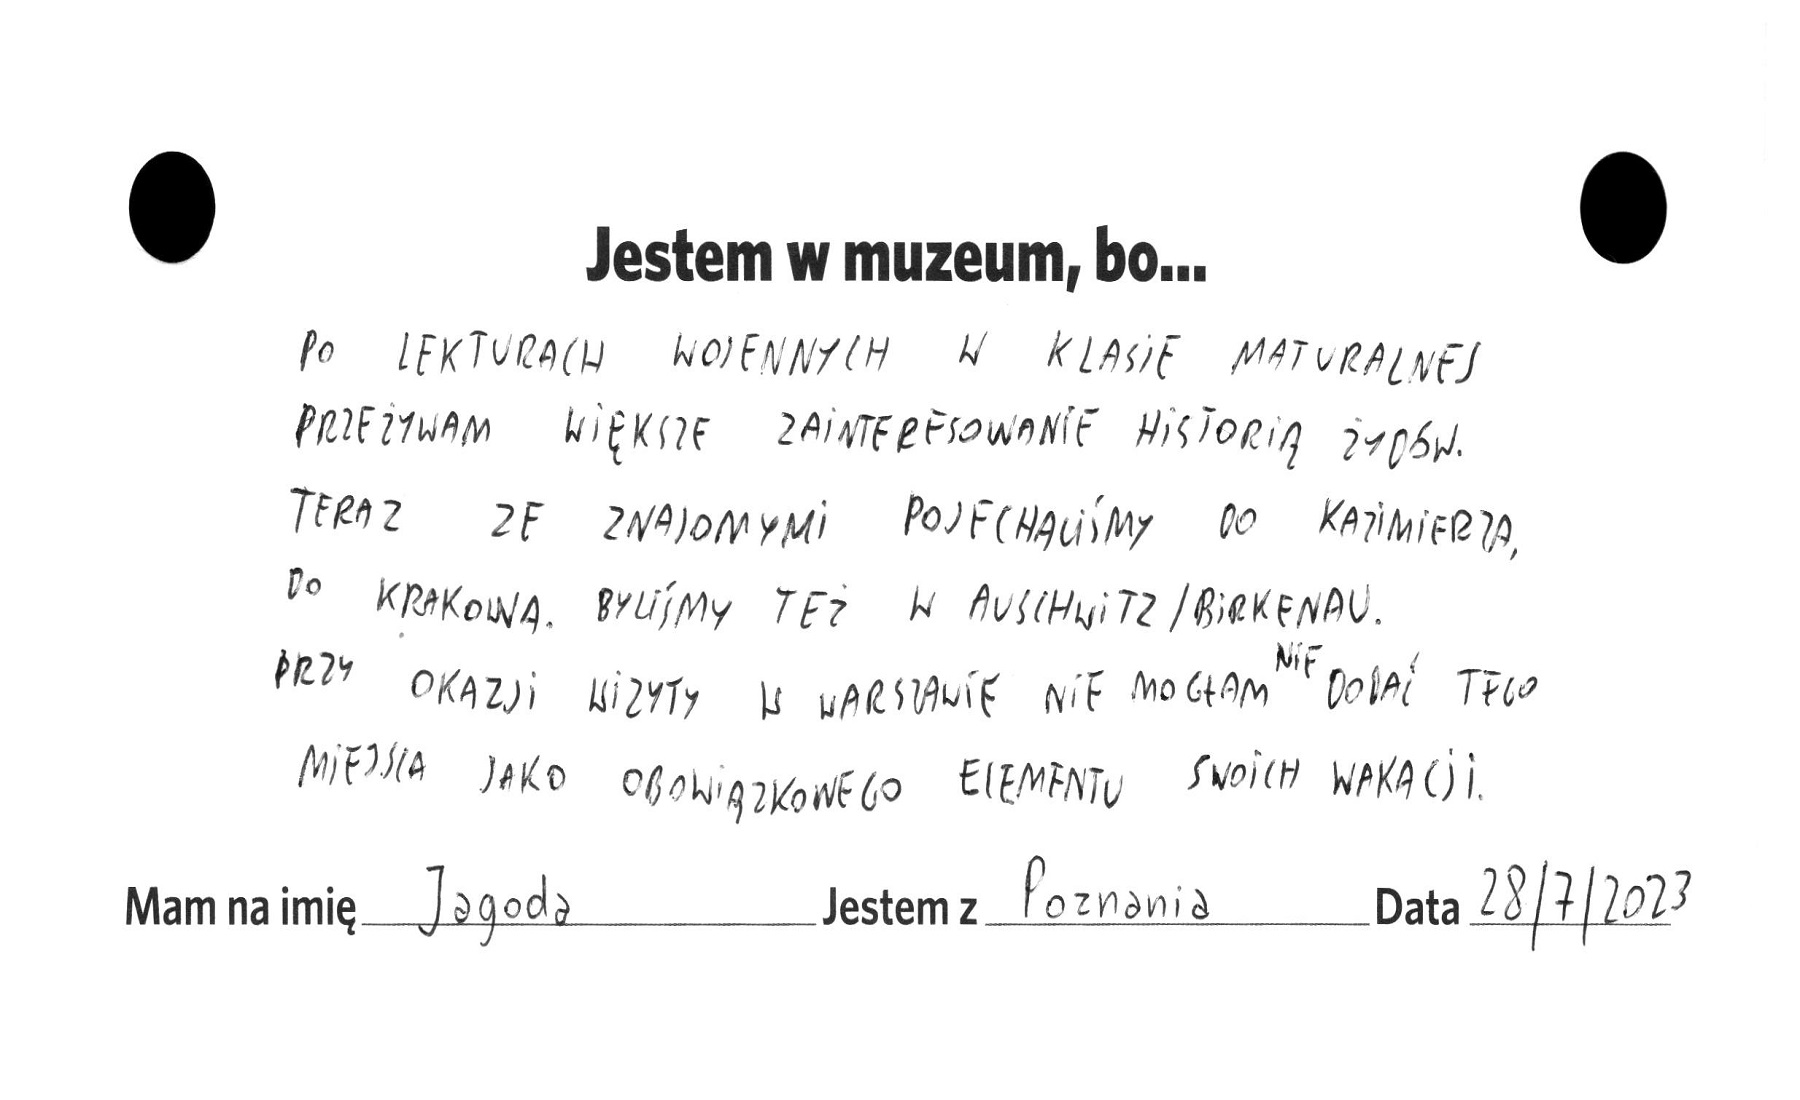 Jestem w muzeum, bo...
PO LEKTURACH WOJENNYCH W KLASIE MATURALNEJ
PRZEŻYWAM WIĘKSZE ZAINTERESOWANIE HISTORIĄ ŻYDÓW.
TERAZ ZE ZNAJOMYMI POJECHALIŚMY DO KAZIMIERZA,
DO KRAKOWA. BYLIŚMY TEŻ W AUSCHWITZ/BIRKENAU.
PRZY OKAZJI WIZYTY W WARSZAWIE NIE MOGŁAM NIE DODAĆ TEGO
MIEJSCA JAKO OBOWIĄZKOWEGO ELEMENTU SWOICH WAKACJI.
Mam na imię Jagoda Jestem z Poznania Data 28/7/2023